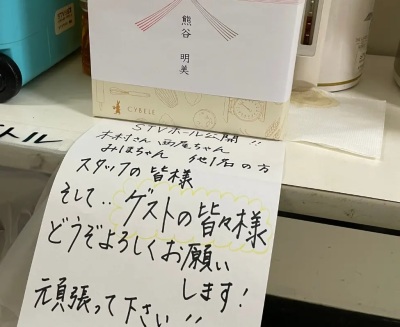 熊谷
明美
CYBELE
STVホール公開!!
木村さん 西尾ちゃん
みほちゃん 他1名の方
スタッフの皆様
そして.. ゲストの皆々様
どうぞよろしくお願い
します!
頑張って下さい!!
トル